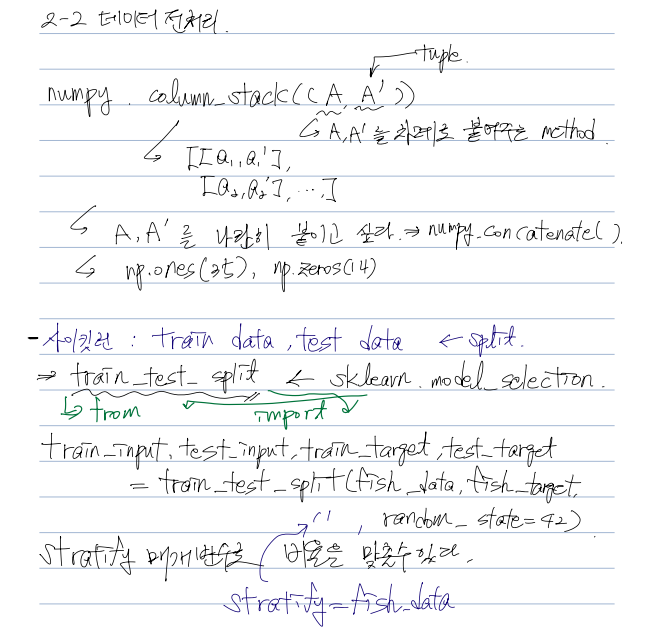 2-2 데이터 전처리.
tuple.
numpy . column_stack((A, A'))
A, A'을 차례로 붙여주는 method.
[[a₁, a₁'],
[a₂, a₂'], ...]
A, A'를 나란히 붙이고 싶다. ⇒ numpy.concatenate().
np.ones(35), np.zeros(14)
- 사이킷런 : train data, test data ← split.
⇒ train_test_split ← sklearn.model_selection.
from import
train_input, test_input, train_target, test_target
= train_test_split(fish_data, fish_target,
'' , random_state=42)
stratify 매개변수로 비율을 맞출수 있다.
stratify=fish_data